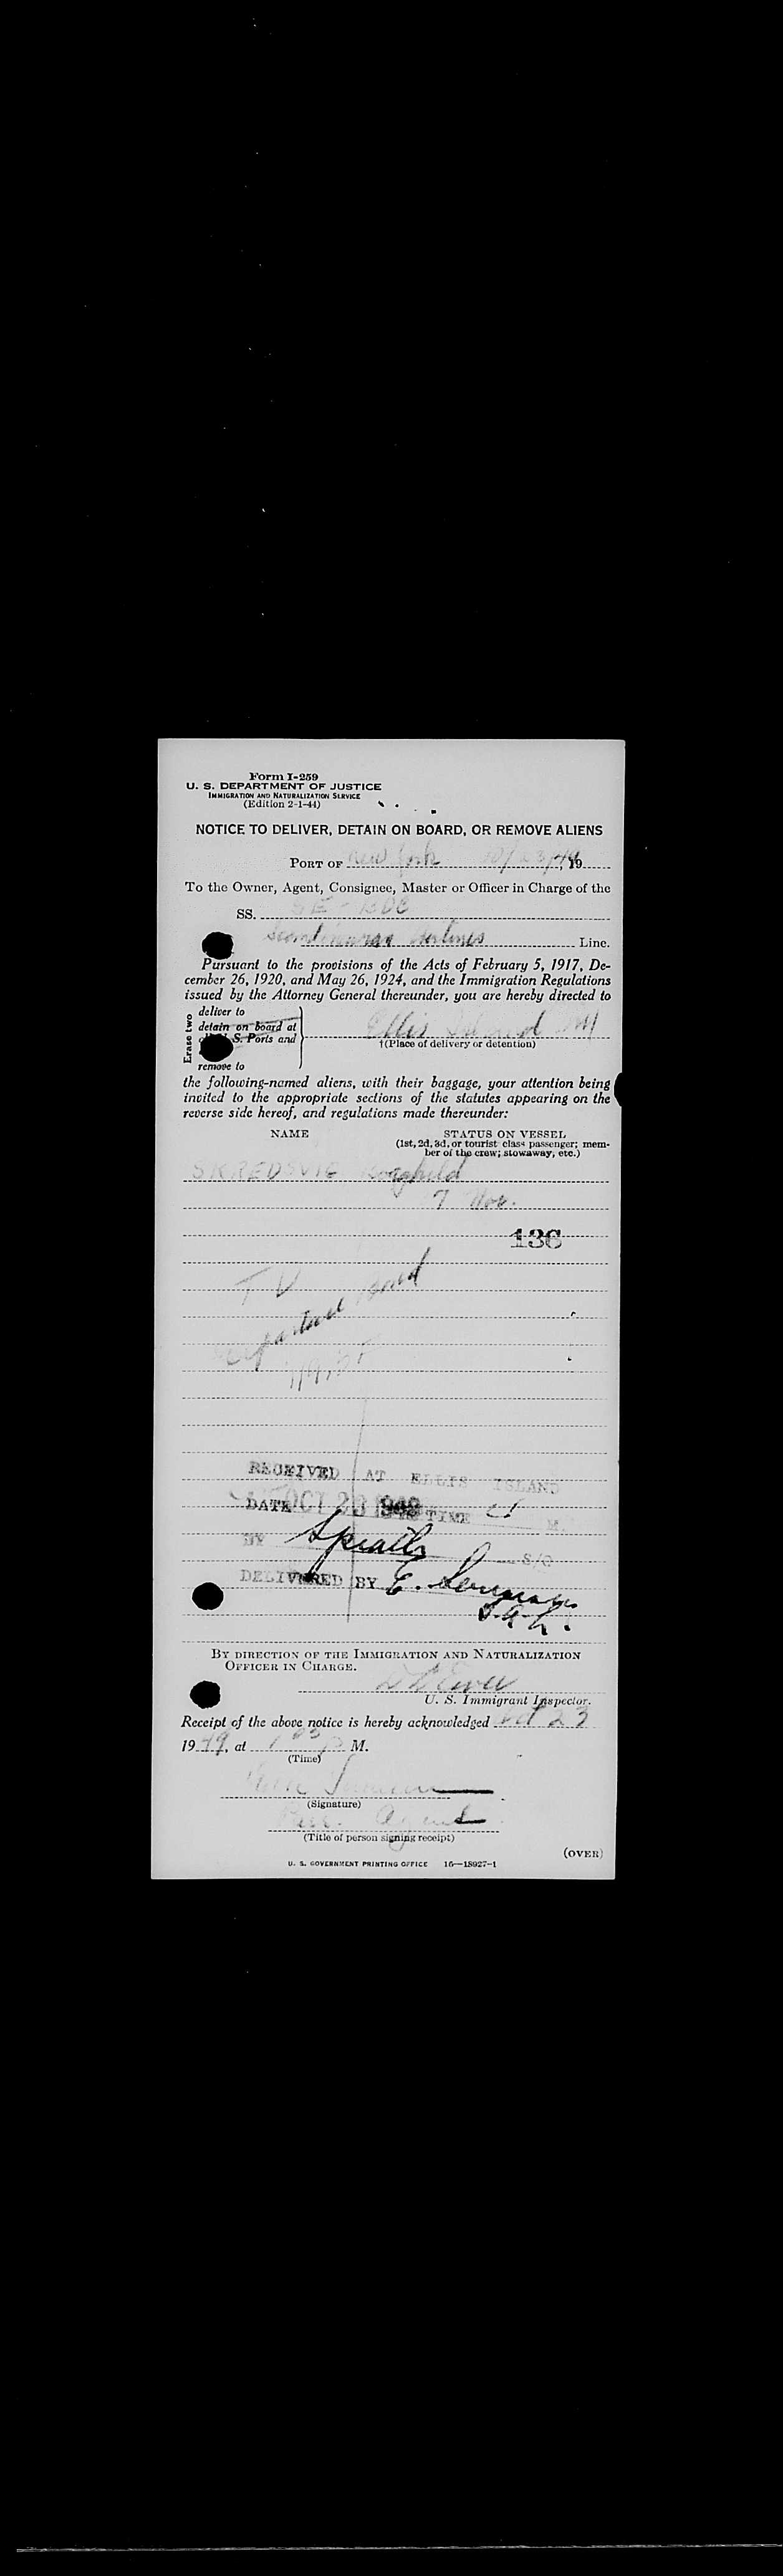 Form I-259
U. S. DEPARTMENT OF JUSTICE
IMMIGRATION AND NATURALIZATION SERVICE
(Edition 2-1-44)
NOTICE TO DELIVER, DETAIN ON BOARD, OR REMOVE ALIENS
PORT OF New York 10/23/49, 19
To the Owner, Agent, Consignee, Master or Officer in Charge of the
SS. SE-
Scandinavian Airlines Line.
Pursuant to the provisions of the Acts of February 5, 1917, De-
cember 26, 1920, and May 26, 1924, and the Immigration Regulations
issued by the Attorney General thereunder, you are hereby directed to
Erase two
deliver to
detain on board at
S. Ports and
remove to
Ellis Island
†(Place of delivery or detention)
the following-named aliens, with their baggage, your attention being
invited to the appropriate sections of the statutes appearing on the
reverse side hereof, and regulations made thereunder:
NAME STATUS ON VESSEL
(1st, 2d, 3d, or tourist class passenger; mem-
ber of the crew; stowaway, etc.)
SKREDSVIG
7 Nov.
136
RECEIVED AT ELLIS ISLAND
DATE OCT 23 TIME M.
BY S/O
DELIVERED BY E.
BY DIRECTION OF THE IMMIGRATION AND NATURALIZATION
OFFICER IN CHARGE.
U. S. Immigrant Inspector.
Receipt of the above notice is hereby acknowledged Oct 23
1949, at M.
(Time)
(Signature)
Agent
(Title of person signing receipt)
(OVER)
U. S. GOVERNMENT PRINTING OFFICE 16—18927-1